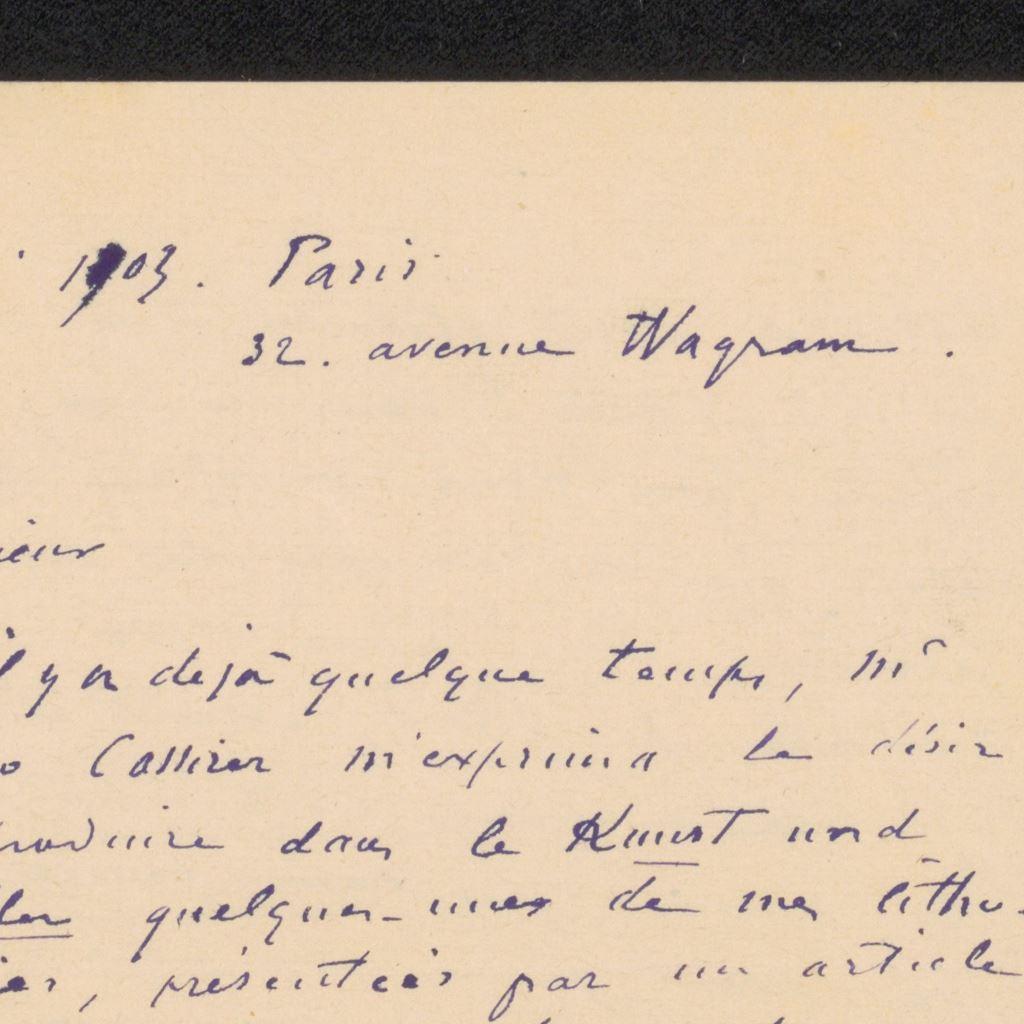 1903. Paris.
32. avenue Wagram.
ieur
il y a déjà quelque temps, Mr
o Cassirer m'exprima le désir
roduire dans le Kunst und
ler quelques-unes de mes litho-
ies, présentées par un article